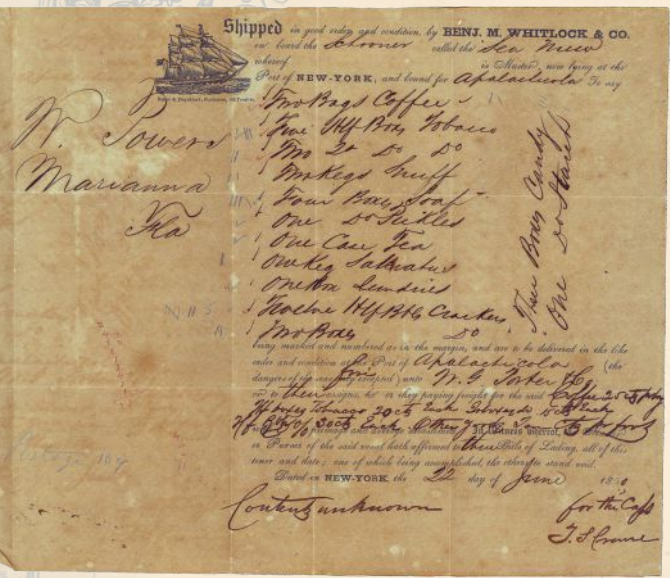 Shipped in good order and condition, by BENJ. M. WHITLOCK & CO.
on board the Schooner called the Sea Mew
whereof is Master, now lying at the
Port of NEW-YORK, and bound for Apalachicola To say
W. Powers
Marianna
Fla
Two Bags Coffee
Five Hlf Boxes Tobacco
Two Do Do
Two Kegs Snuff
Four Boxes Soap
One Do Pickles
One Case Tea
One Keg Salaratus
One Box Sundries
Twelve Hlf Bbls Crackers
Two Boxes Do
Three Boxes Candy
One Do Starch
being marked and numbered as in the margin, and are to be delivered in the like
order and condition at the Port of Apalachicola (the
dangers of the excepted) unto W. G. Porter & Co
or to their assigns, he or they paying freight for the said Coffee 20 cts
Hlf boxes Tobacco 20 cts Each
30 cts Each
In Witness whereof, the Master
or Purser of the said vessel hath affirmed to three Bills of Lading, all of this
tenor and date; one of which being accomplished, the others to stand void.
Dated in NEW-YORK, the 22 day of June 1850
Contents unknown
for the Capt